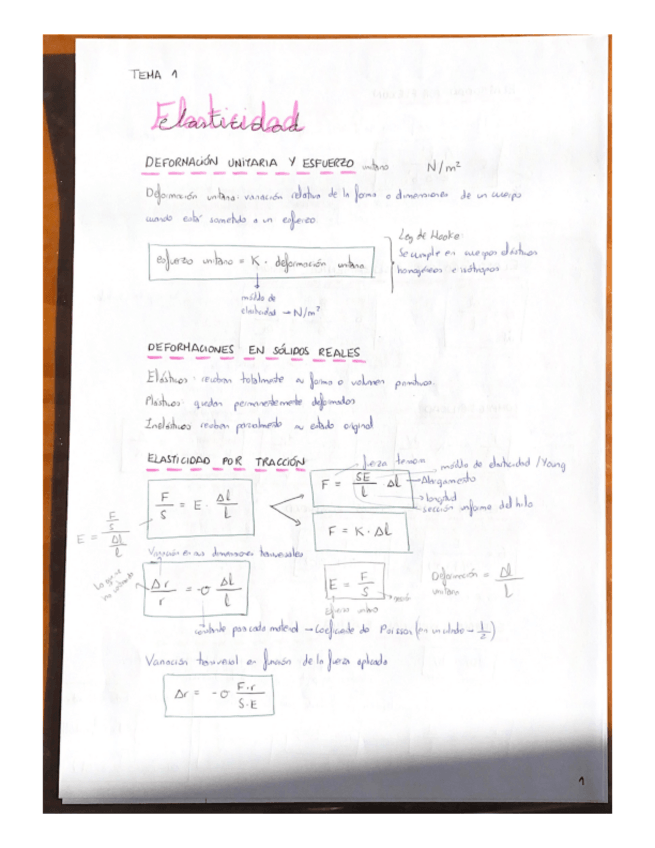 TEMA 1
Elasticidad
DEFORMACIÓN UNITARIA Y ESFUERZO unitario N/m²
Deformación unitaria: variación relativa de la forma o dimensiones de un cuerpo
cuando está sometido a un esfuerzo.
esfuerzo unitario = K · deformación unitaria
Ley de Hooke:
Se cumple en cuerpos elásticos
homogéneos e isótropos
módulo de
elasticidad → N/m²
DEFORMACIONES EN SÓLIDOS REALES
Elásticos: recobran totalmente su forma o volumen primitivos.
Plásticos: quedan permanentemente deformados
Inelásticos recobran parcialmente su estado original
ELASTICIDAD POR TRACCIÓN
fuerza tensora
módulo de elasticidad / Young
F/S = E · Δl/l
F = SE/l · Δl
Alargamiento
longitud
sección uniforme del hilo
F = K · Δl
E = F/S / Δl/l
Variación en sus dimensiones transversales
Δr/r = -σ Δl/l
E = F/S
esfuerzo unitario
Deformación unitaria = Δl/l
constante para cada material → Coeficiente de Poisson (1/2)
Variación transversal en función de la fuerza aplicada
Δr = -σ F·r/S·E
1